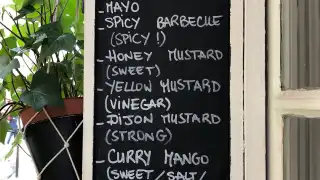 _MAYO
_SPICY BARBECUE
(SPICY !)
_HONEY MUSTARD
(SWEET)
_YELLOW MUSTARD
(VINEGAR)
_DIJON MUSTARD
(STRONG)
_CURRY MANGO
(SWEET/SALT/